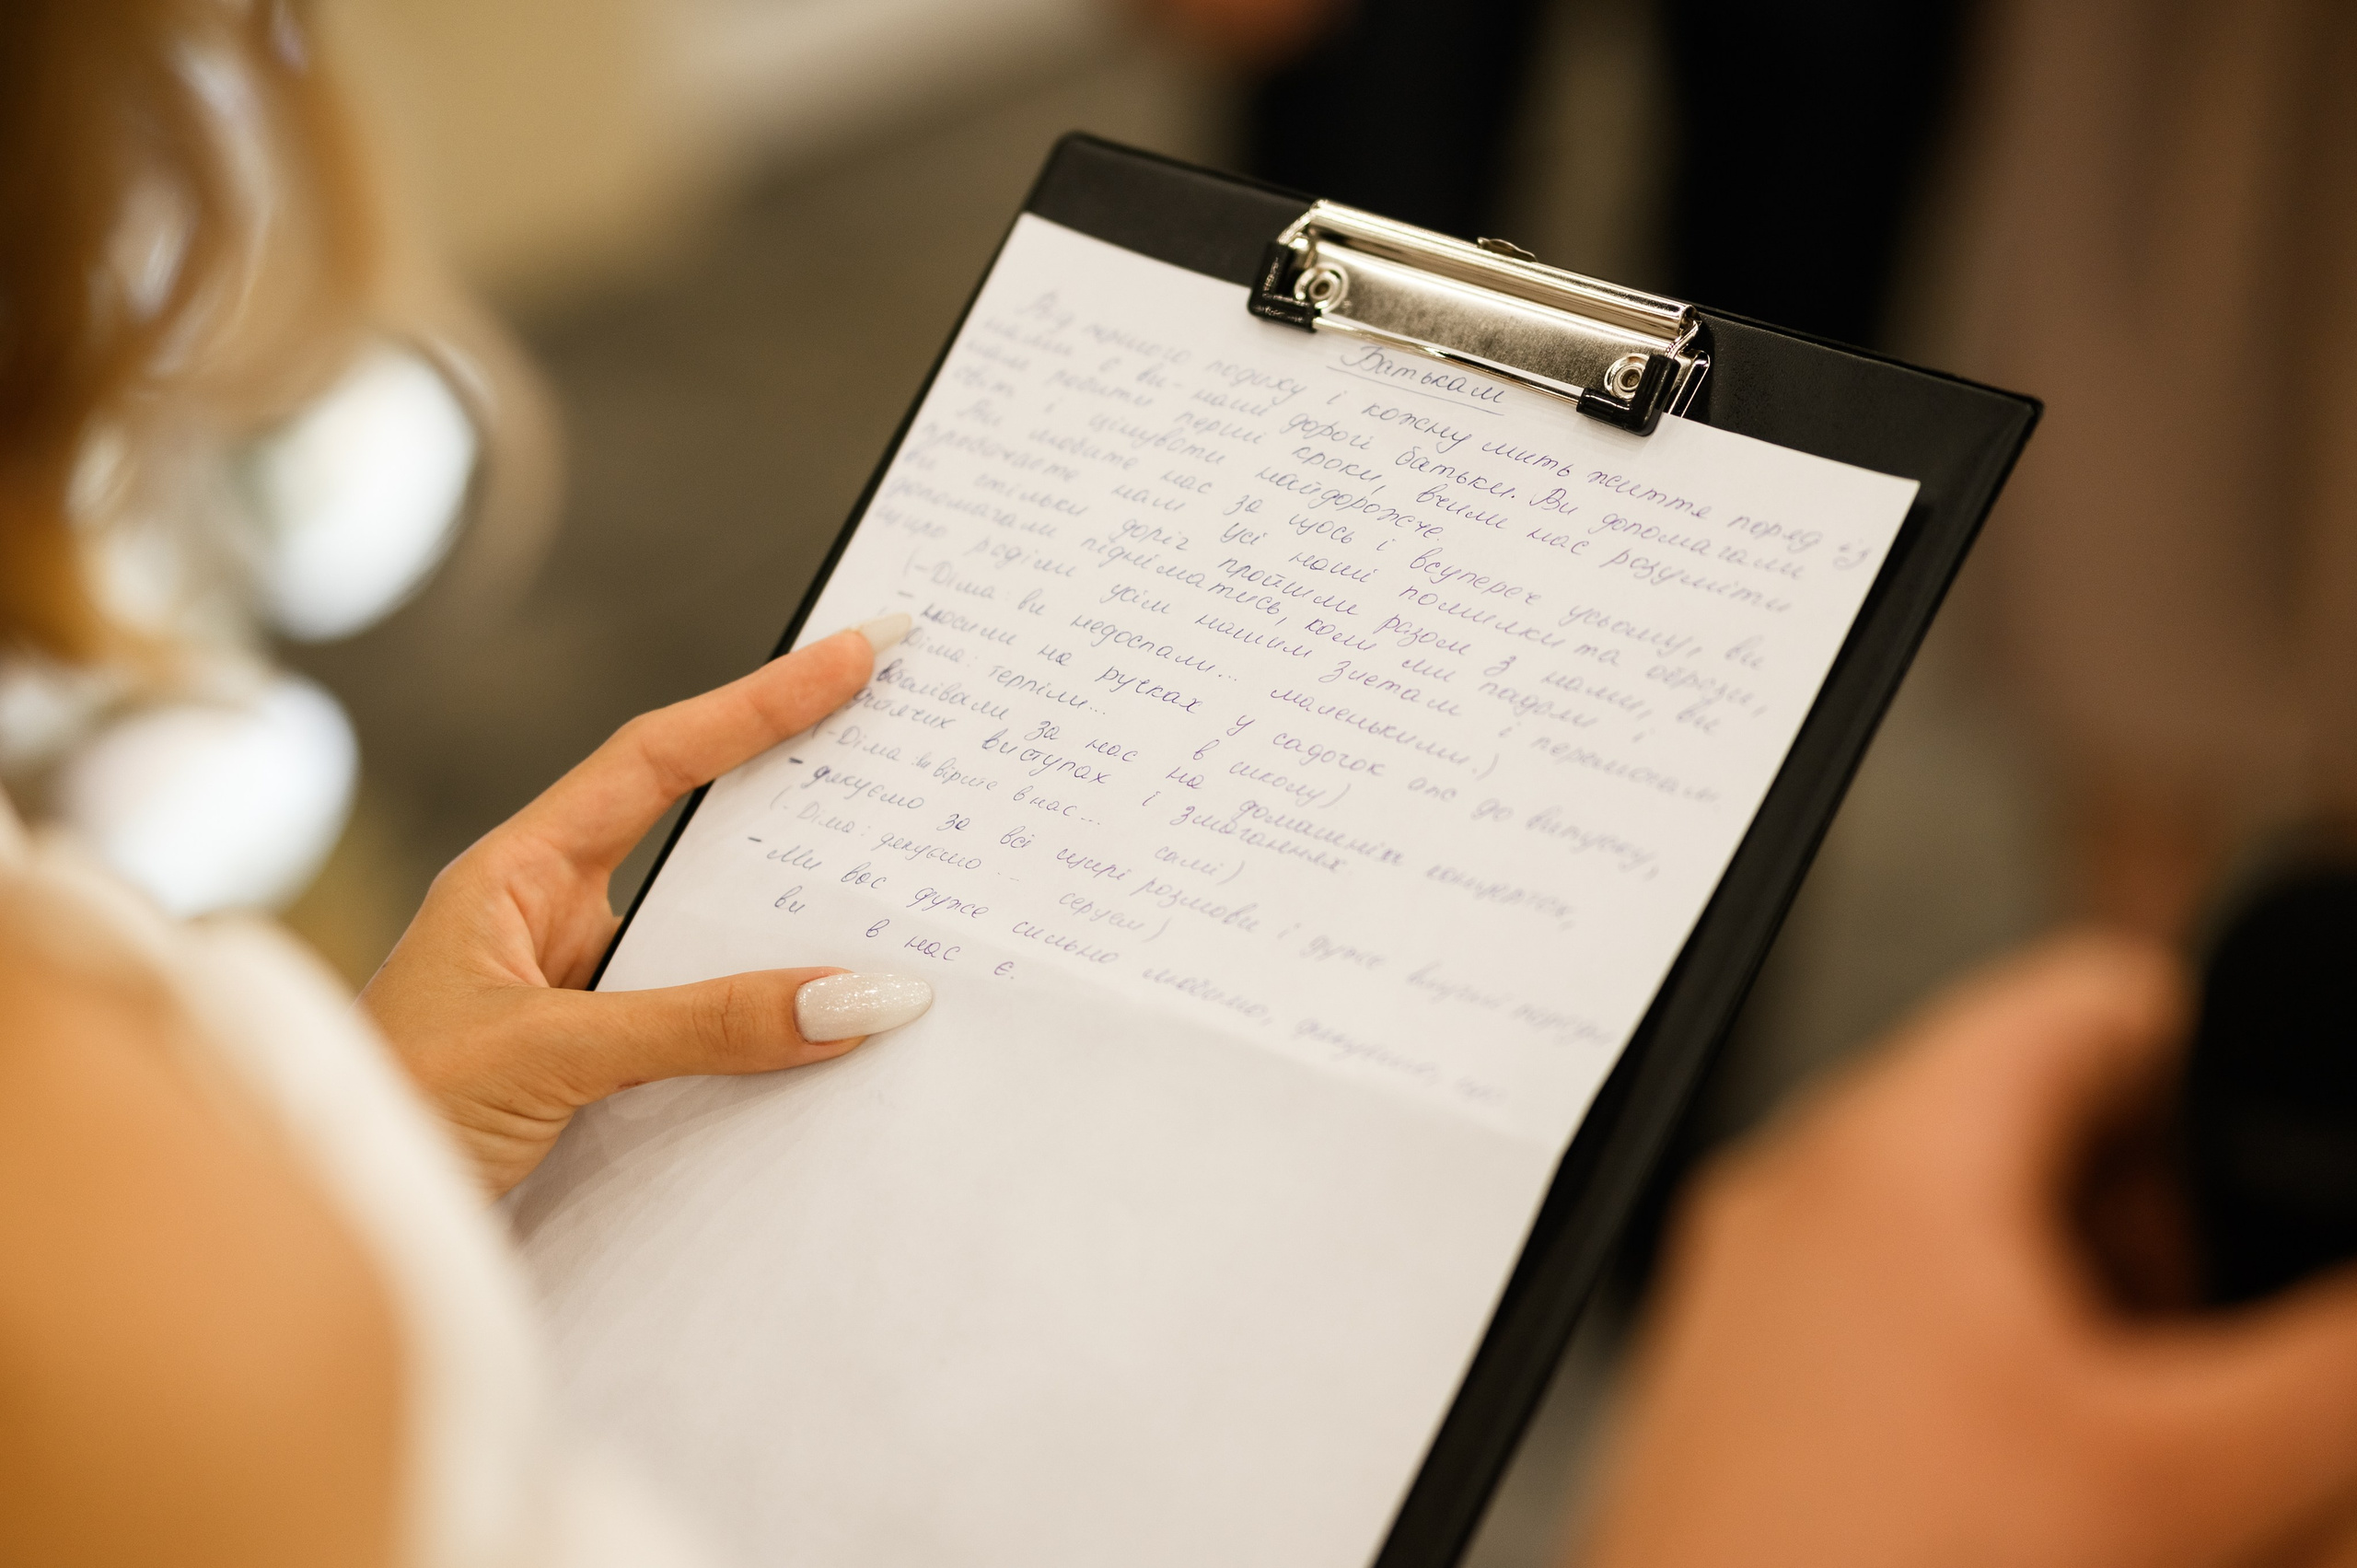 Батькам
Від першого подиху і кожну мить життя поряд із
нами є ви - наші дорогі батьки. Ви допомагали
нам робити перші кроки, вчили нас розуміти
світ і цінувати найдорожче.
Ви любите нас за щось і всупереч усьому, ви
пробачаєте нам усі наші помилки та образи,
ви стільки доріг пройшли разом з нами, ви
допомагали підніматись, коли ми падали і
щиро раділи усім нашим злетам і перемогам.
(-Діма: ви недоспали... маленькими.)
- носили на ручках у садочок аж до випуску,
Діма: терпіли... в школу)
вболівали за нас на домашніх концертах,
виступах і змаганнях.
(-Діма: ви вірите в нас... самі)
- дякуємо за всі щирі розмови і дуже
(- Діма: дякуємо... серцем)
- Ми вас дуже сильно любимо, дякуємо, що
ви в нас є.